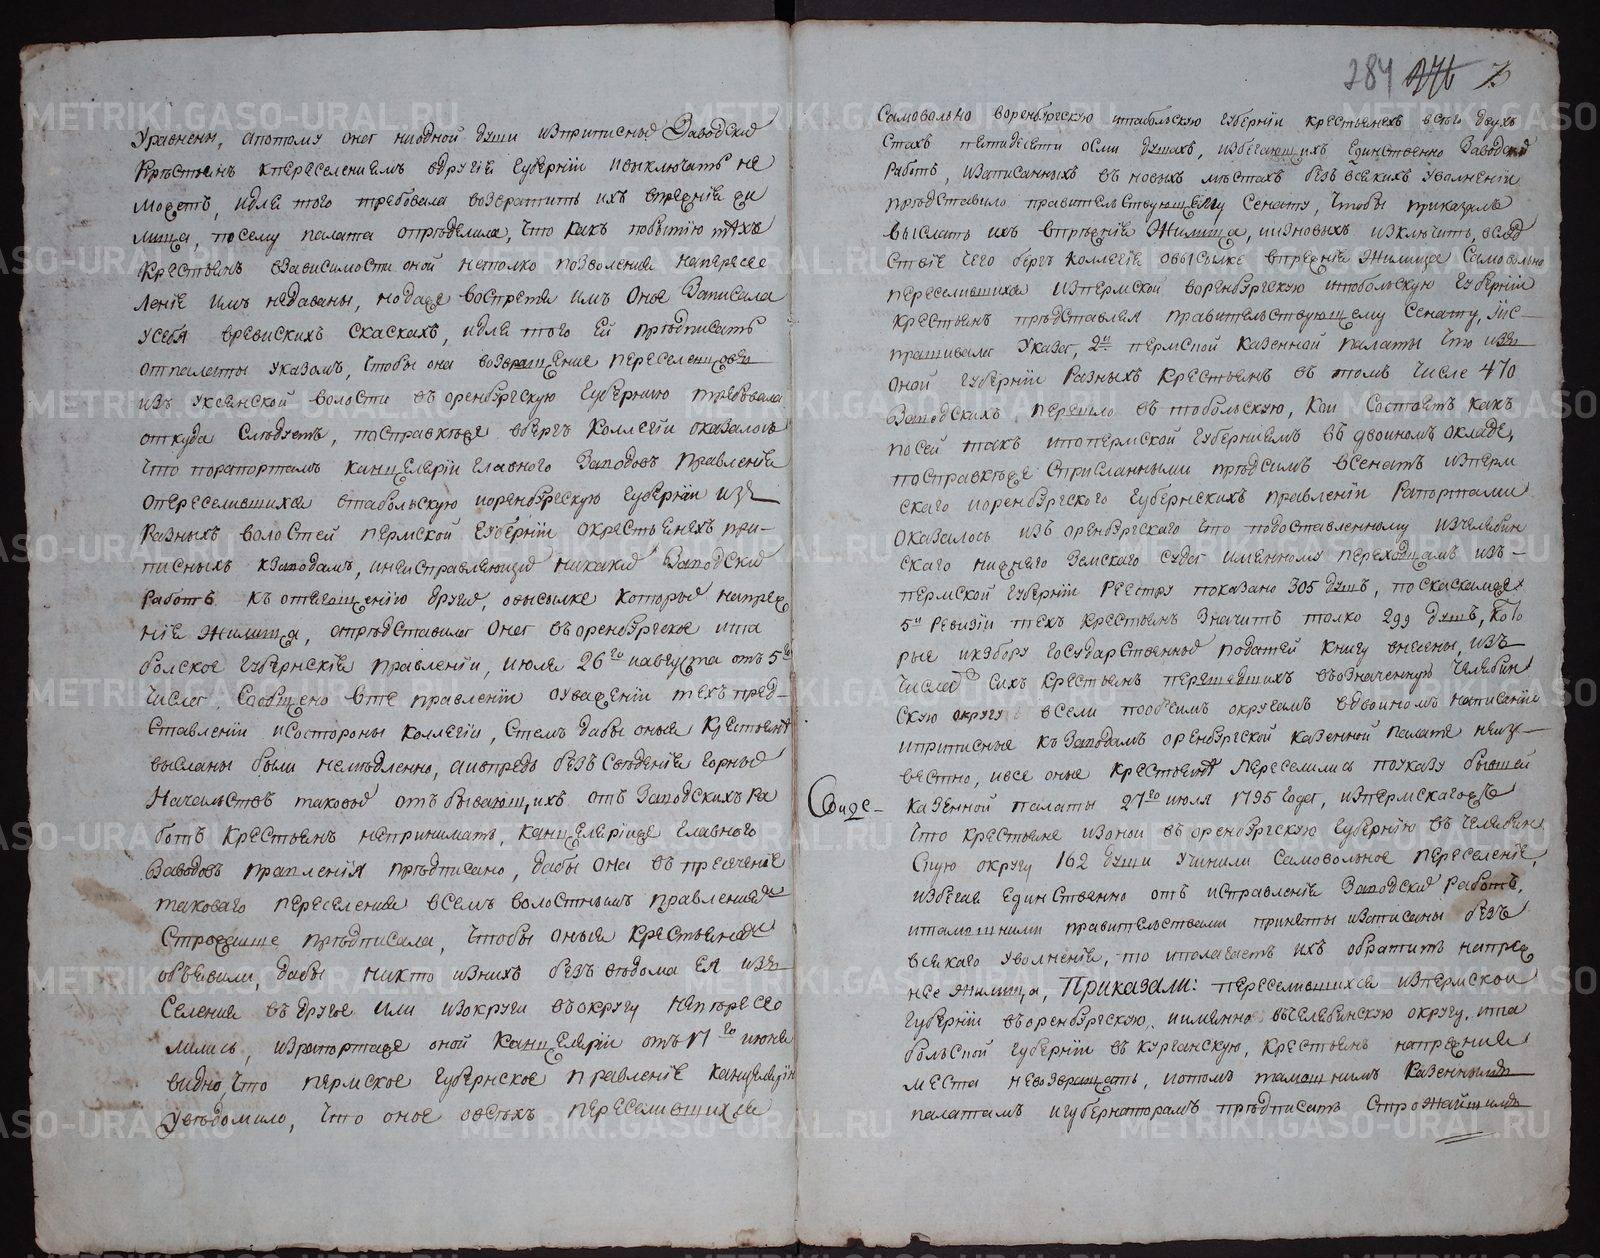 Уравнены, апотому онаг ниодной души изприписныхъ Заводскихъ
Крестьянъ кпереселениемъ вдругие Губернии исключать не
можетъ, идля того требовала возвратить ихъ впрежние жи
лища, посему палата определила, что какъ побытию техъ
Крестьянъ взависимости оной нетолко позволения напересе
ление имъ недаваны, но даже воспретя имъ оное Записала
усебя вревискихъ сказкахъ, идля того ей предписать
отпалаты указомъ, чтобы она возвращение переселенцовъ
изъ Уксянской волости въ оренбургскую Губернию требовала
откуда следуетъ, посправкеже вбергъ Коллегии оказалось
что порапортамъ канцелярии главного Заводовъ правления
опереселившихся втабольскую иоренбургскую Губернии изъ
разныхъ волостей пермской Губернии окрестьянехъ при-
писныхъ кзаводамъ, инеисправляющихъ никакихъ Заводскихъ
работъ къ отягощению другихъ, овысылке которыхъ напреж
ние жилища, апредставилаг онаг въоренбургское ита
болское Губернские правлении, июля 26го иавгуста отъ 5го
числаг, Сообщено вте правлении оуважении техъ пред-
ставлений исостороны коллегии, стемъ дабы оныя Крестьяня
высланы были немедленно, аивпредь безъ сведения горныхъ
Начальствъ таковыхъ отъбывающихъ отъ Заводскихъ Ра
ботъ крестьянъ непринимать, канцелярииже главного
Заводовъ правления предписано, дабы она въ пресечение
таковаго переселения всемъ волостнымъ правлениямъ
Строжаише предписала, чтобы оныя крестьянамъ
объявили, дабы никто изнихъ безъ ведома ея изъ
Селения въ другое или изокруги въокругу непересе
лились, израпортаже оной Канцелярии отъ 17го июня
видно, что пермское Губернское правление канцелярии
уведомило, что оное овсехъ переселившихся
284 276 7
Самовольно воренбургскую итабольскую Губернии крестьянехъ всего двухъ
стахъ пятидесяти осми душахъ, избегающихъ единственно Заводскихъ
работъ, изаписанныхъ въ новыхъ местахъ безъ всякихъ увольнений
представило правительствующему Сенату, чтобы приказалъ
выслать ихъ впрежние жилища, аизновыхъ изключить, вслед
ствие чего бергъ Коллегия овысылке впрежние жилища Самовольно
переселившихся изпермской воренбургскую итобольскую Губернии
крестьянъ представляя правительствующему Сенату, Ис-
прашивалаг Указаг, 2е пермской казенной палаты что изъ
оной Губернии разныхъ крестьянъ въ томъ числе 470
Заводскихъ перешло въ тобольскую, Кои состоятъ какъ
посей такъ ипопермской Губерниемъ въ двойномъ окладе,
посправкеже Сприсланными предсимъ всенатъ изперм
скаго иоренбургского Губернскихъ правлений рапортами
оказалось изъ оренбургскаго что подоставленному изчелябин
скаго нижнего Земскаго судаг именному переходцамъ изъ-
пермской Губернии реестру показано 305 душъ, поскаскамже
5й ревизии техъ крестьянъ значитъ толко 299 душъ, Кото
рые икзбору государственныхъ податей книгу внесены, изъ
числаг сихъ крестьянъ перешедшихъ въозначенную Челябин
скую округу всели пообеимъ округамъ вдвойномъ написании
иприписные къ заводамъ оренбургской казенной палате неиз-
вестно, ивсе оные крестьяня переселились поуказу бывшей
Ониже- казенной палаты 27го июля 1795 годаг, изпермскагоже
что крестьяне изоной въ оренбургскую Губернию въ Челябин
скую округу 162 души учинили самовольное переселение,
избегая единственно отъ исправления Заводскихъ работъ,
итамошними правительствами приняты изаписаны безъ
всякаго уволнения, то иполагаетъ ихъ обратить напреж
нее жилища, Приказали: переселившихся изпермской
Губернии въоренбургскую, иимянно въчелябинскую округу, ита
больской Губернии въ курганскую, крестьянъ напрежния
места невозвращать, ипотомъ тамошнимъ казеннымъ
палатамъ игубернаторамъ предписать строжайшимъ